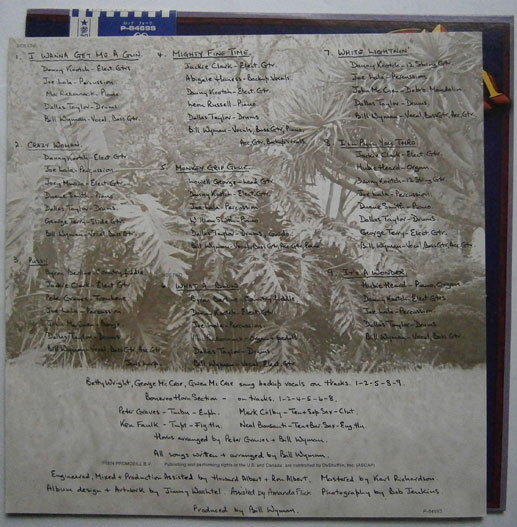 P-8468S
1. I WANNA GET ME A GUN
Danny Kootch - Elect. Gtrs
Joe Lala - Percussion
Mac Rebennack - Piano
Dallas Taylor - Drums
Bill Wyman - Vocal, Bass Gtr
2. CRAZY WOMAN
Danny Kootch - Elect. Gtr.
Joe Lala - Percussion
Joey Murcia - Elect. Gtr
Duane Smith - Piano
Dallas Taylor - Drums
George Terry - Slide Gtr
Bill Wyman - Vocal, Bass Gtr
3. PUSSY
Byron Berline - Country Fiddle
Jackie Clark - Elect. Gtr
Pete Graves - Trombone
Joe Lala - Percussion
John McEuen - Banjo
Dallas Taylor - Drums
Bill Wyman - Vocal, Bass Gtr, Aco Gtr
4. MIGHTY FINE TIME
Jackie Clark - Elect. Gtr.
Abigale Haness - Backup Vocals
Danny Kootch - Elect. Gtr
Leon Russell - Piano
Dallas Taylor - Drums
Bill Wyman - Vocals, Bass Gtr, Piano,
Aco Gtr, Backup Vocals
5. MONKEY GRIP GLUE
Lowell George - Lead Gtr
Danny Kootch - Elect. Gtr
Joe Lala - Percussion
William Smith - Piano
Dallas Taylor - Drums,
Bill Wyman - Vocal, Bass Gtr, Aco Gtr, Piano
6. WHAT A BLOW
Byron Berline - Country Fiddle
Danny Kootch - Elect. Gtr
Joe Lala - Percussion
Dallas Taylor - Drums
Bill Wyman - Vocal, Elect. Gtr
7. WHITE LIGHTNIN'
Danny Kootch - 12 String Gtr
Joe Lala - Percussion
John McEuen - Dobro, Mandolin
Dallas Taylor - Drums
Bill Wyman - Vocal, Bass Gtr, Aco Gtr
8. I'LL PULL YOU THRO'
Jackie Clark - Elect. Gtr.
Hubie Heard - Organ
Danny Kootch - 12 String Gtr
Joe Lala - Percussion
Duane Smith - Piano
Dallas Taylor - Drums
George Terry - Elect. Gtr
Bill Wyman - Vocal, Bass Gtr, Aco Gtr
9. IT'S A WONDER
Hubie Heard - Piano, Organ
Danny Kootch - Elect Gtrs
Joe Lala - Percussion
Dallas Taylor - Drums
Bill Wyman - Vocal, Bass Gtr
Betty Wright, George McCrae, Gwen McCrae sang backup vocals on tracks. 1-2-5-8-9.
Bonaroo Horn Section - on tracks. 1-2-4-5-6-8.
Peter Graves - Trmbn - Euph. Mark Colby - Ten+Sop. Sax - Clnt.
Ken Faulk - Trmpt - Flg. Hn. Neal Bonsanti - Ten+Bar. Sax - Eng. Hn.
Horns arranged by Peter Graves + Bill Wyman.
All songs written + arranged by Bill Wyman.
Publishing and performing rights in the U.S. and Canada are controlled by
Engineered, Mixed + Production Assisted by Howard Albert + Ron Albert. Mastered by Karl Richardson.
Album design + Artwork by Jimmy Wachtel Assisted by Amanda Flick Photography by Bob Jenkins
Produced by Bill Wyman.